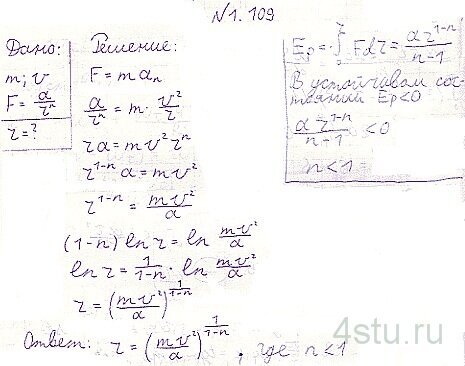 №1.109
Дано:
m; v
F = a/rⁿ
r = ?
Решение:
F = m aₙ
a/rⁿ = m · v²/r
ra = mv² rⁿ
r¹⁻ⁿ a = mv²
r¹⁻ⁿ = mv²/a
(1-n) ln r = ln mv²/a
ln r = 1/(1-n) · ln mv²/a
r = (mv²/a)^(1/(1-n))
Ответ: r = (mv²/a)^(1/(1-n)), где n<1
Eₚ = -∫ Fdr = ar¹⁻ⁿ/(n-1)
В устойчивом сос-
тоянии Eₚ<0
ar¹⁻ⁿ/(n-1) <0
n<1
4stu.ru